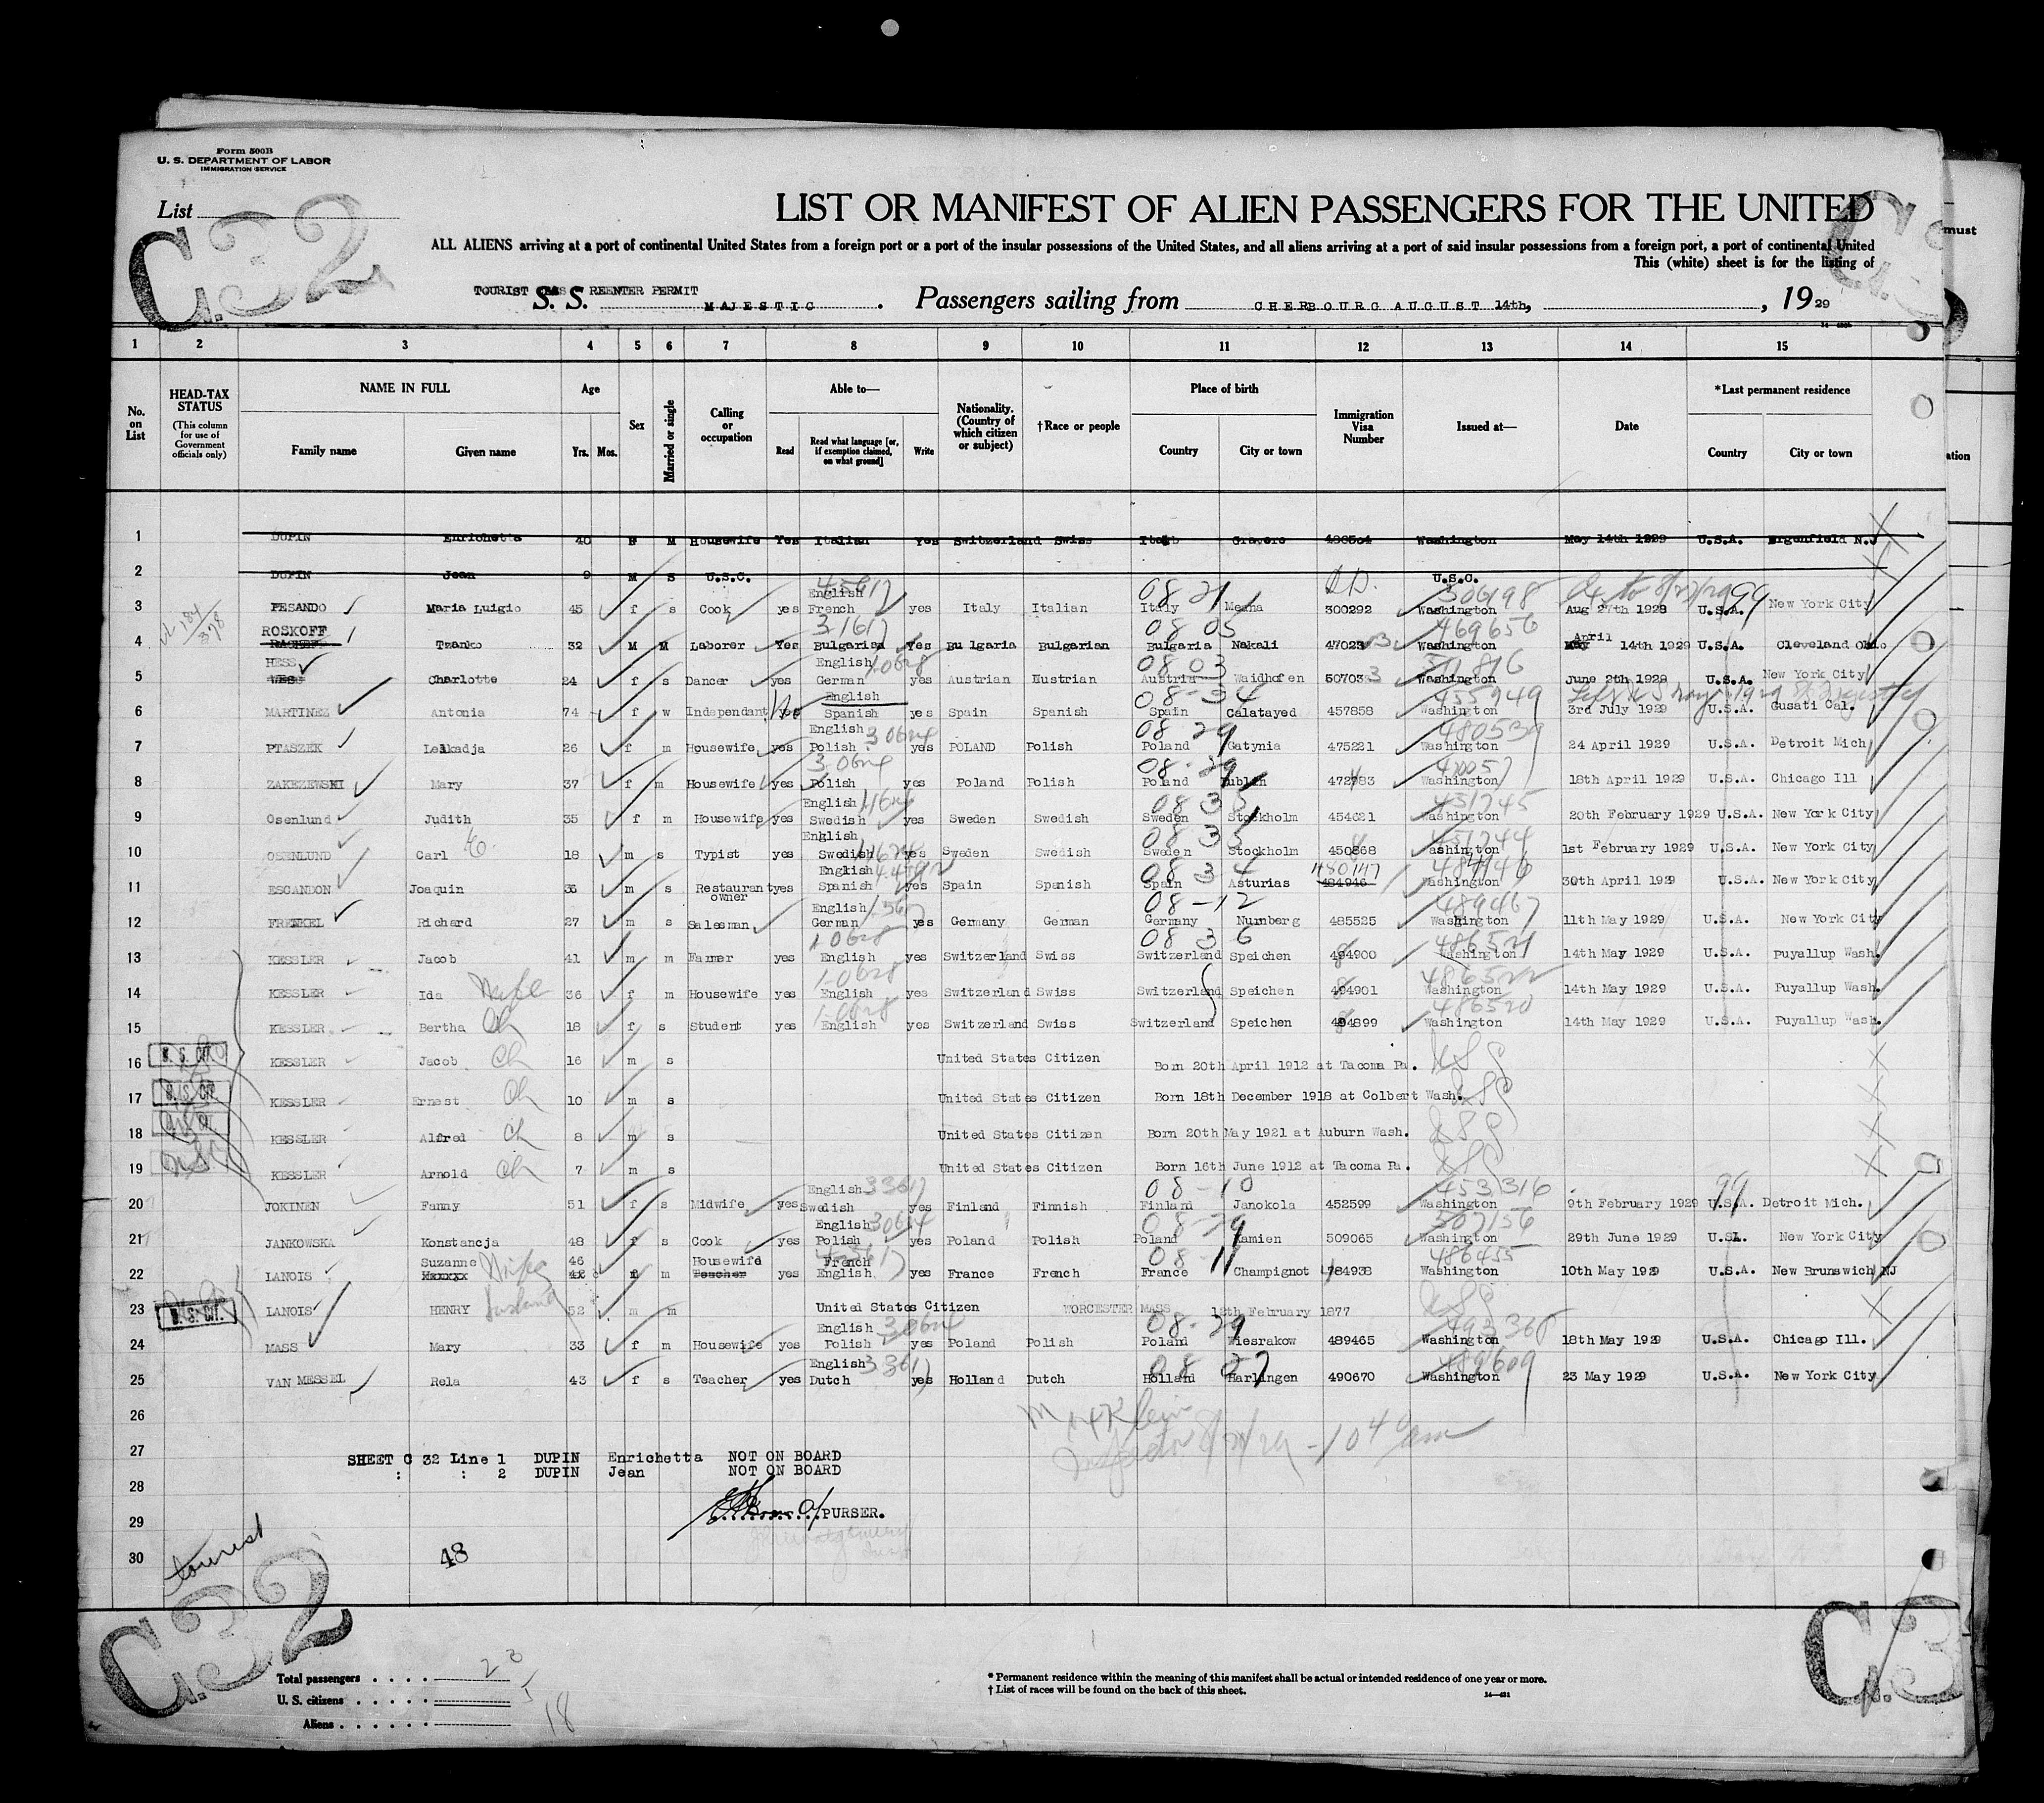 Form 500B
U. S. DEPARTMENT OF LABOR
IMMIGRATION SERVICE
List
C.32
LIST OR MANIFEST OF ALIEN PASSENGERS FOR THE UNITED
ALL ALIENS arriving at a port of continental United States from a foreign port or a port of the insular possessions of the United States, and all aliens arriving at a port of said insular possessions from a foreign port, a port of continental United
This (white) sheet is for the listing of
TOURIST REENTER PERMIT
S. S. MAJESTIC. Passengers sailing from CHERBOURG AUGUST 14th, , 19 29
1 2 3 4 5 6 7 8 9 10 11 12 13 14 15
No. on List
HEAD-TAX STATUS (This column for use of Government officials only)
NAME IN FULL Family name Given name
Age Yrs. Mos.
Sex
Married or single
Calling or occupation
Able to— Read Read what language [or, if exemption claimed, on what ground] Write
Nationality. (Country of which citizen or subject)
†Race or people
Place of birth Country City or town
Immigration Visa Number
Issued at—
Date
*Last permanent residence Country City or town
1 DUPIN Enrichetta 40 F M Housewife Yes Italian Yes Switzerland Swiss Gravere Washington May 14th 1929 U.S.A. N.J
2 DUPIN Jean 9 M S U.S.C. U.S.C.
3 PESANDO Maria Luigio 45 f s Cook yes English French yes Italy Italian Italy Meana 300292 Washington Aug 27th 1928 U.S.A. New York City
08 21 306198 99
4 ROSKOFF Tzanko 32 M M Laborer Yes Bulgarian Yes Bulgaria Bulgarian Bulgaria Nakali 47023 Washington April 14th 1929 U.S.A. Cleveland Ohio
31617 08 05 469656
5 HESS Charlotte 24 f s Dancer yes English German yes Austrian Hustrian Austria Waidhofen 50703 Washington June 2th 1929 U.S.A. New York City
08 03
6 MARTINEZ Antonia 74 f w Independant yes English Spanish yes Spain Spanish Spain Calatayed 457858 Washington 3rd July 1929 U.S.A. Gusati Cal.
08-34 455949
7 PTASZEK Leikadja 26 f m Housewife yes English Polish yes POLAND Polish Poland Gatynia 475221 Washington 24 April 1929 U.S.A. Detroit Mich
30624 08 29 480539
8 ZAKEZEWSKI Mary 37 f m Housewife yes Polish yes Poland Polish Poland Lublin 472783 Washington 18th April 1929 U.S.A. Chicago Ill
30624 08-29
9 Osenlund Judith 35 f m Housewife yes English Swedish yes Sweden Swedish Sweden Stockholm 454621 Washington 20th February 1929 U.S.A. New York City
08 35 451745
10 OSENLUND Carl 18 m s Typist yes English Swedish yes Sweden Swedish Sweden Stockholm 450868 Washington 1st February 1929 U.S.A. New York City
08 35 451744
11 ESCANDON Joaquin 35 m s Restaurant owner yes English Spanish yes Spain Spanish Spain Asturias 484946 Washington 30th April 1929 U.S.A. New York City
08 34 480747 484946
12 FRENKEL Richard 27 m s Salesman English German yes Germany German Germany Nurnberg 485525 Washington 11th May 1929 U.S.A. New York City
08-12 489467
13 KESSLER Jacob 41 m m Farmer yes English yes Switzerland Swiss Switzerland Speichen 494900 Washington 14th May 1929 U.S.A. Puyallup Wash.
10628 08 36 486521
14 KESSLER Ida Wife 36 f m Housewife yes English yes Switzerland Swiss Switzerland Speichen 494901 Washington 14th May 1929 U.S.A. Puyallup Wash.
10628 486522
15 KESSLER Bertha Ch 18 f s Student yes English yes Switzerland Swiss Switzerland Speichen 494899 Washington 14th May 1929 U.S.A. Puyallup Wash.
10628 486520
16 U. S. CIT. KESSLER Jacob Ch 16 m s United States Citizen Born 20th April 1912 at Tacoma Pa.
17 U. S. CIT. KESSLER Ernest Ch 10 m s United States Citizen Born 18th December 1918 at Colbert Wash.
18 U. S. CIT. KESSLER Alfred Ch 8 m s United States Citizen Born 20th May 1921 at Auburn Wash.
19 KESSLER Arnold Ch 7 m s United States Citizen Born 16th June 1912 at Tacoma Pa.
20 JOKINEN Fanny 51 f s Midwife yes English Swedish yes Finland Finnish Finland Janokola 452599 Washington 9th February 1929 U.S.A. Detroit Mich.
33617 08-10 453316 99
21 JANKOWSKA Konstancja 48 f s Cook yes English Polish yes Poland Polish Poland Kamien 509065 Washington 29th June 1929 U.S.A. New York City
30624 08-29 507156
22 LANOIS Suzanne Wife 46 f m Housewife Teacher yes French English yes France French France Champignol 484938 Washington 10th May 1929 U.S.A. New Brunswick NJ
08-11 486455
23 U. S. CIT. LANOIS HENRY husband 52 m m United States Citizen WORCESTER MASS 12th February 1877
24 MASS Mary 33 f m Housewife yes English Polish yes Poland Polish Poland Wiesrakow 489465 Washington 18th May 1929 U.S.A. Chicago Ill.
30624 08-29
25 VAN MESSEL Rela 43 f s Teacher yes English Dutch yes Holland Dutch Holland Harlingen 490670 Washington 23 May 1929 U.S.A. New York City
33617 08 27 489609
26
27
28
29
30
SHEET C 32 Line 1 DUPIN Enrichetta NOT ON BOARD
: : 2 DUPIN Jean NOT ON BOARD
PURSER.
tourist
48
C.32
C.3
Total passengers . . . . 23
U. S. citizens . . . . . 5
Aliens . . . . . . 18
* Permanent residence within the meaning of this manifest shall be actual or intended residence of one year or more.
† List of races will be found on the back of this sheet.
must
ation